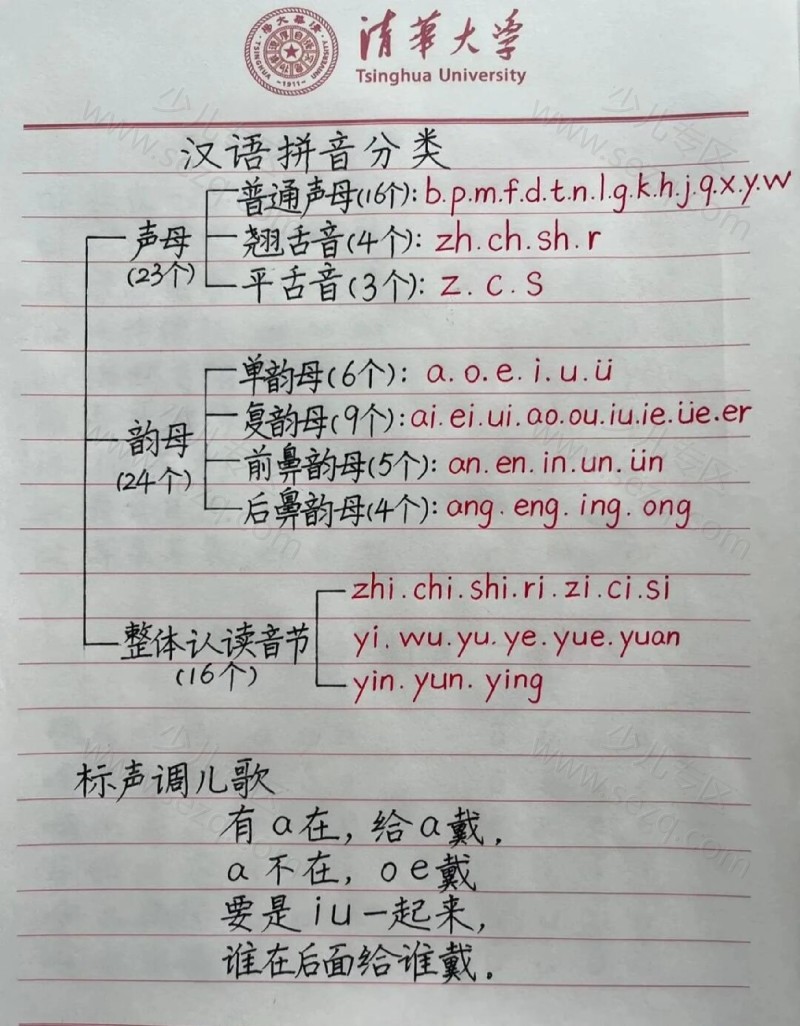 清华大学
Tsinghua University
汉语拼音分类
声母
(23个)
普通声母(16个): b.p.m.f.d.t.n.l.g.k.h.j.q.x.y.w
翘舌音(4个): zh.ch.sh.r
平舌音(3个): z.c.s
韵母
(24个)
单韵母(6个): a.o.e.i.u.ü
复韵母(9个): ai.ei.ui.ao.ou.iu.ie.üe.er
前鼻韵母(5个): an.en.in.un.ün
后鼻韵母(4个): ang.eng.ing.ong
整体认读音节
(16个)
zhi.chi.shi.ri.zi.ci.si
yi.wu.yu.ye.yue.yuan
yin.yun.ying
标声调儿歌
有a在，给a戴，
a不在，oe戴
要是iu一起来，
谁在后面给谁戴。